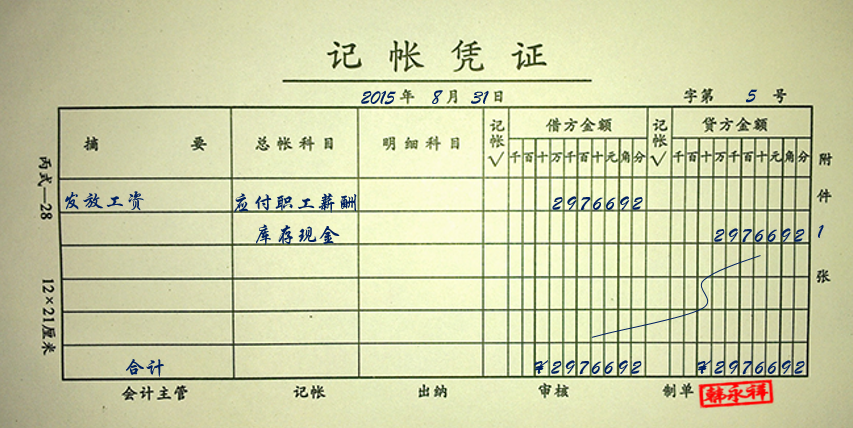 记帐凭证
2015年 8月 31日 字第 5 号
摘 要 总帐科目 明细科目 记帐√ 借方金额 记帐√ 贷方金额
千百十万千百十元角分 千百十万千百十元角分
发放工资 应付职工薪酬 2976692
库存现金 2976692
合计 ¥2976692 ¥2976692
附件 1 张
丙式—28 12×21厘米
会计主管 记帐 出纳 审核 制单 韩永祥